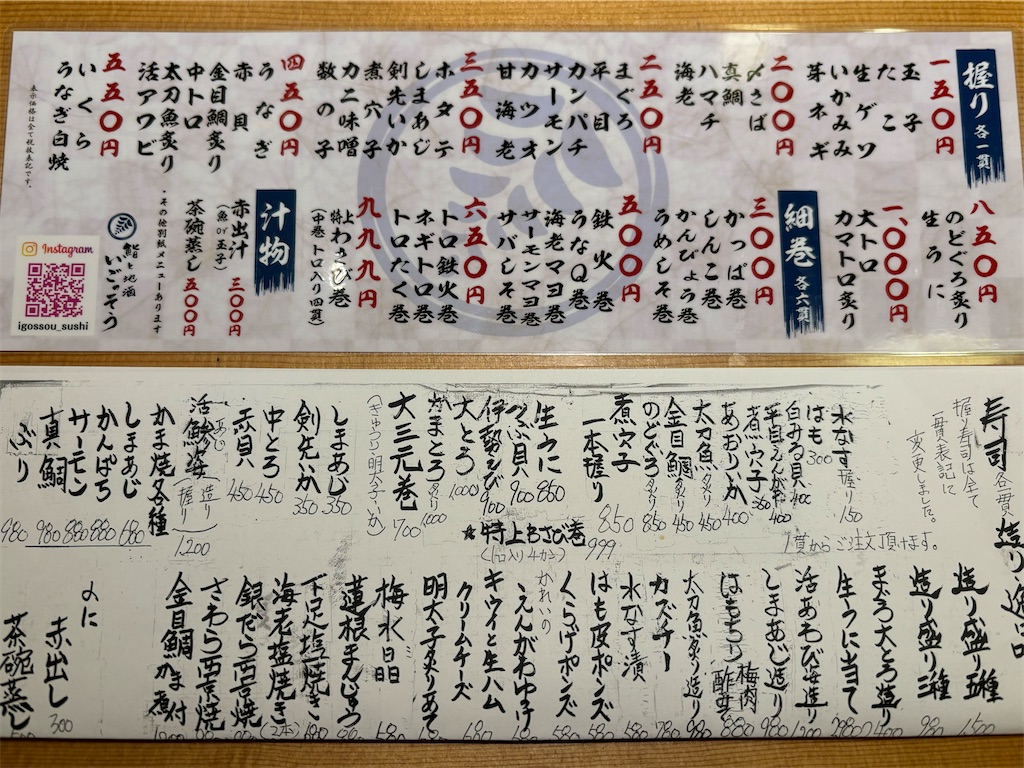 握り 各一貫
一五〇円
玉子
たこ
生ゲソ
いかみみ
芽ネギ
二〇〇円
〆さば
真鯛
ハマチ
海老
二五〇円
まぐろ
平目
カンパチ
サーモン
カツオ
甘海老
三五〇円
ホタテ
しまあじ
剣先いか
煮穴子
カニ味噌
数の子
四五〇円
うなぎ
赤貝
金目鯛炙り
中トロ
太刀魚炙り
活アワビ
五五〇円
いくら
うなぎ白焼
表示価格は全て税抜表記です。
八五〇円
のどぐろ炙り
生うに
一、〇〇〇円
大トロ
カマトロ炙り
細巻 各六貫
三〇〇円
かっぱ巻
しんこ巻
かんぴょう巻
うめしそ巻
五〇〇円
鉄火巻
うなQ巻
海老マヨ巻
サーモンマヨ巻
サバしそ巻
六五〇円
トロ鉄火巻
ネギトロ巻
トロたく巻
九九九円
上
特わさび巻
(中巻トロ入り四貫)
汁物
赤出汁 三〇〇円
(魚or玉子)
茶碗蒸し 五〇〇円
・その他別紙メニューあります
鮨と地酒
いごっそう
Instagram
igossou_sushi
寿司各一貫
握り寿司は全て
一貫表記に
変更しました。
1貫からご注文頂けます。
水なす握り 150
はも 300
白みる貝 400
平目えんがわ 400
煮穴子 350
あおりいか 400
太刀魚炙り 450
金目鯛炙り 450
のどぐろ炙り 850
煮穴子
一本握り 850
★特上わさび巻 999
(トロ入り4かん)
生うに 850
つぶ貝 900
伊勢えび 900
大とろ 1000
かまとろ炙り 1000
大三元巻 700
(きゅうり・明太子・いか)
しまあじ 350
剣先いか 350
中とろ 450
赤貝 450
活鯵姿(造り)(握り) 1200
あじ
かま焼き各種
しまあじ 680
かんぱち 880
サーモン 880
真鯛 980
ぶり 980
造り盛り五種 1500
造り盛り三種 980
まぐろ大とろ造り
生うに当て
活あわび造り 1200
しまあじ造り 980
はもちり 梅肉 酢みそ 880
太刀魚炙り造り 980
カズチー
水なす漬 580
はも皮ポンズ 580
くらげポンズ 580
かれいの
えんがわゆうけ
キウイと生ハム 680
クリームチーズ
明太子炙りあて
梅水晶
蓮根まんじゅう
下足塩焼き
海老塩焼き (2本)
銀だら西京焼
さわら西京焼
金目鯛かま煮付
よに
赤出し 300
茶碗蒸し